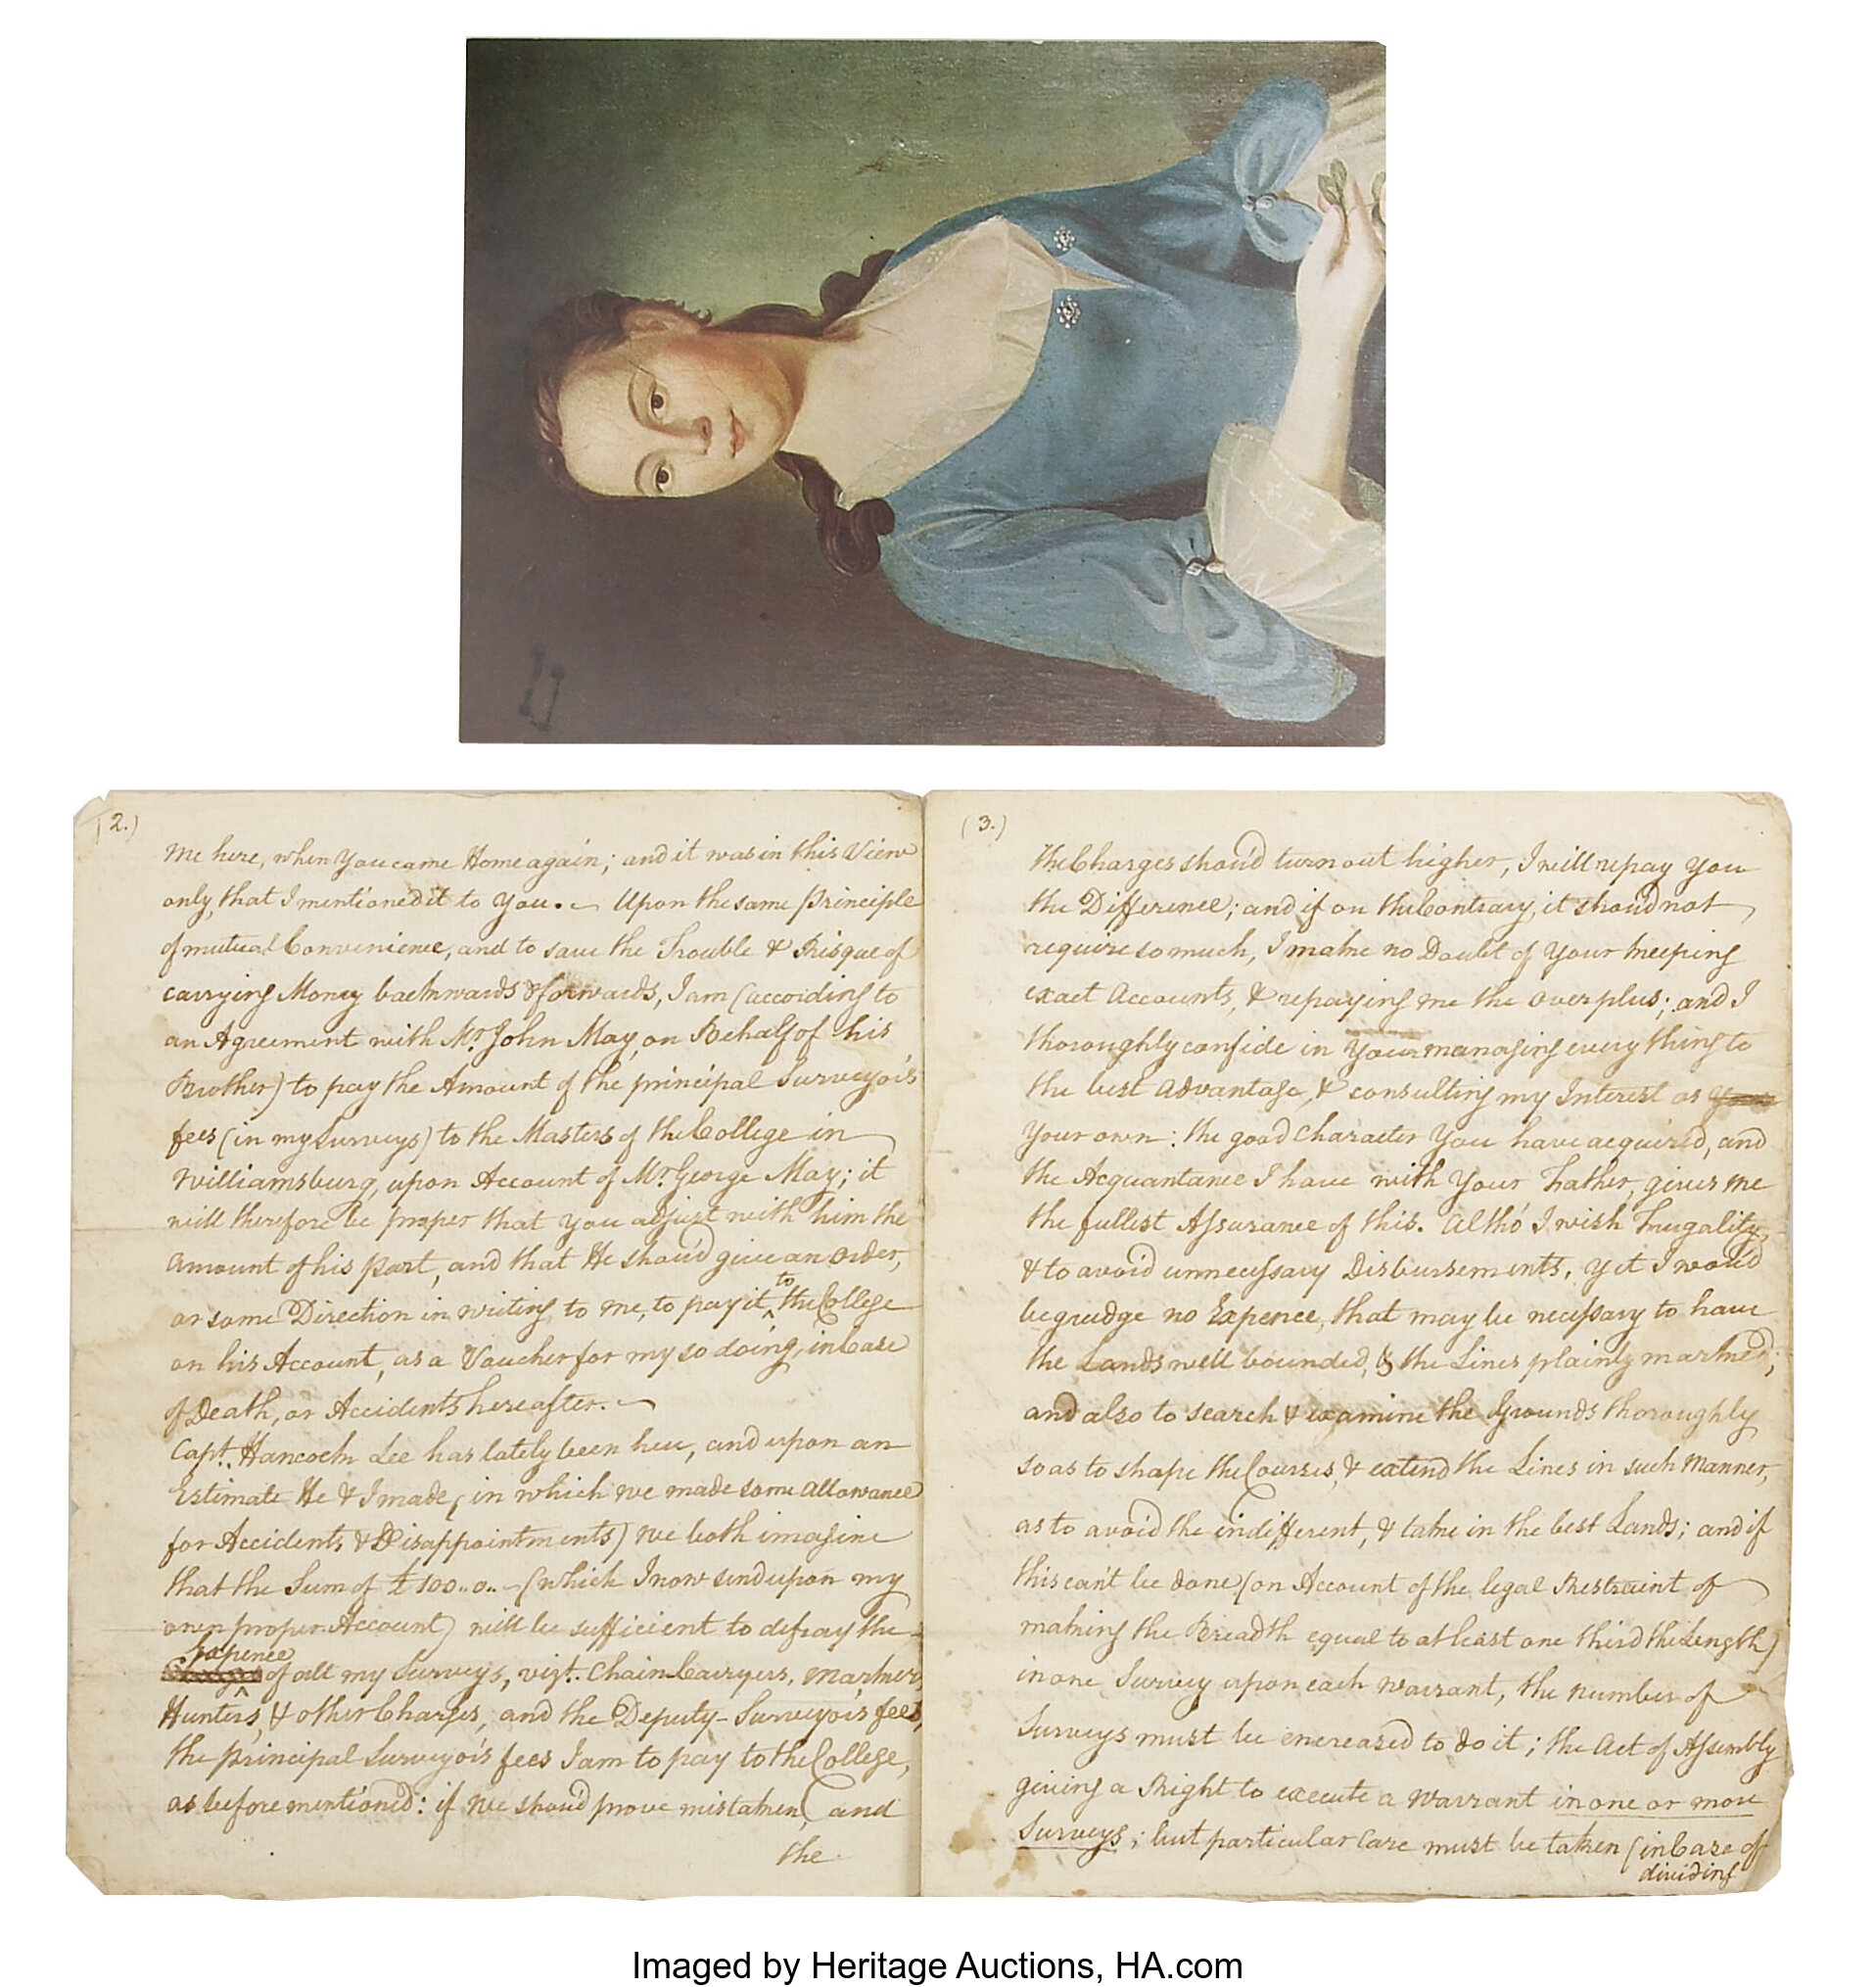 (2.)
me here, when You came Home again; and it was in this View
only, that I mentioned it to You. — Upon the same principle
of mutual Convenience, and to save the Trouble & Risque of
carrying Money backwards & forwards, I am (according to
an Agreement with Mr. John May, on Behalf of his
Brother) to pay the Amount of the principal Surveyor's
fees (in my Surveys) to the Masters of the College in
Williamsburg, upon Account of Mr. George May; it
will therefore be proper that you adjust with him the
Amount of his part, and that He shou'd give an Order,
or some Direction in writing to me, to pay it to the College
on his Account, as a Voucher for my so doing, in Case
of Death, or Accidents hereafter. —
Capt. Hancock Lee has lately been here, and upon an
Estimate He & I made, (in which we made some allowance
for Accidents & Disappointments) we both imagine
that the Sum of £100..0.. — (which I now send upon my
own proper Account) will be sufficient to defray the
Expence
of all my Surveys, vizt. Chain Carryers, Marker,
Hunters, & other Charges, and the Deputy-Surveyors fees,
the principal Surveyor's fees I am to pay to the College,
as before mention'd: if we shou'd prove mistaken, and
the
(3.)
the Charges shou'd turn out higher, I will repay You
the Difference; and if on the Contrary, it shou'd not
require so much, I make no Doubt of Your keeping
exact Accounts, & repaying me the overplus; and I
thoroughly confide in Your managing every thing to
the best advantage, & consulting my Interest as
Your own: the good Character You have acquired, and
the Acquantance I have with Your Father, gives me
the fullest Assurance of this. Altho' I wish Frugality,
& to avoid unnecessary Disbursements, yet I wou'd
begrudge no Expence, that may be necessary to have
the Lands well bounded, & the Lines plainly marked;
and also to search & examine the Grounds thoroughly
so as to shape the Courses, & extend the Lines in such Manner,
as to avoid the indifferent, & take in the best Lands; and if
this can't be done (on Account of the legal Restraint of
making the Breadth equal to at least one third the Length)
in one Survey upon each Warrant, the number of
Surveys must be encreased to do it; the Act of Assembly
giving a Right to execute a Warrant in one or more
Surveys; but particular Care must be taken (in Case of
dividing
Imaged by Heritage Auctions, HA.com